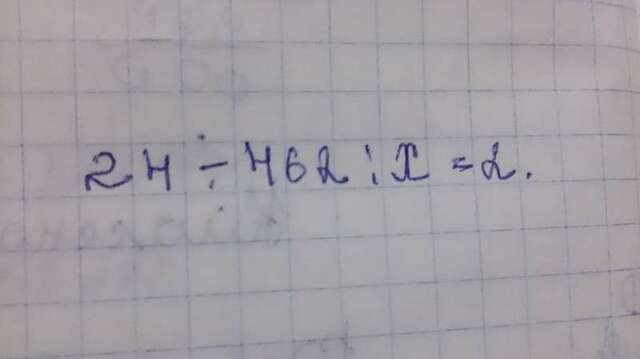 24 ÷ 462 : x = 2.